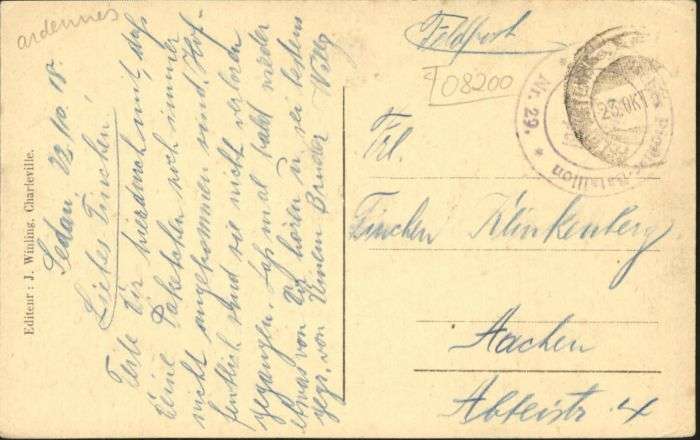 ardennes
Editeur : J. Winling, Charleville.
Sedan. 22/10. 15.
Liebes Finchen!
Teile dir hierdurch mit, daß
deine Paketchen noch immer
nicht angekommen sind. Hof-
fentlich sind sie nicht verloren
gegangen. Laß mal bald wieder
etwas von dir hören u. sei bestens
gegr. von deinem Bruder Willy
Feldpost
08200
Nr. 29.
Bataillon
Frl.
Finchen Klinkenberg
Aachen
Abteistr. 4